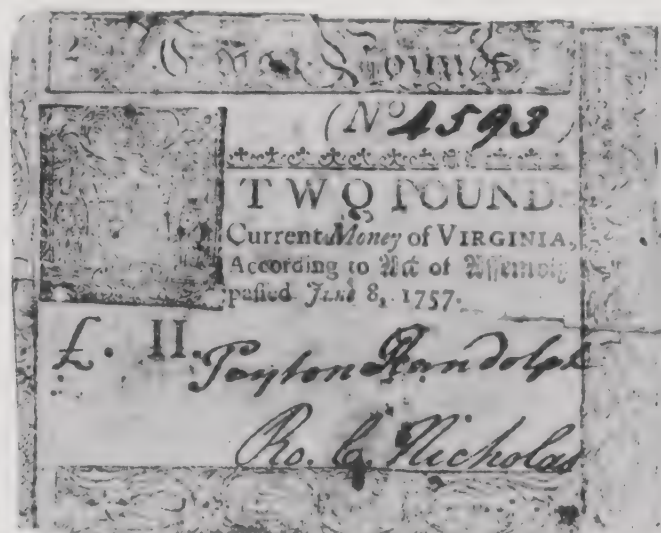 (No 4593)
TWO POUND
Current Money of VIRGINIA,
According to Act of Assembly
passed June 8, 1757.
£. II.
Peyton Randolph
Ro. C. Nicholas